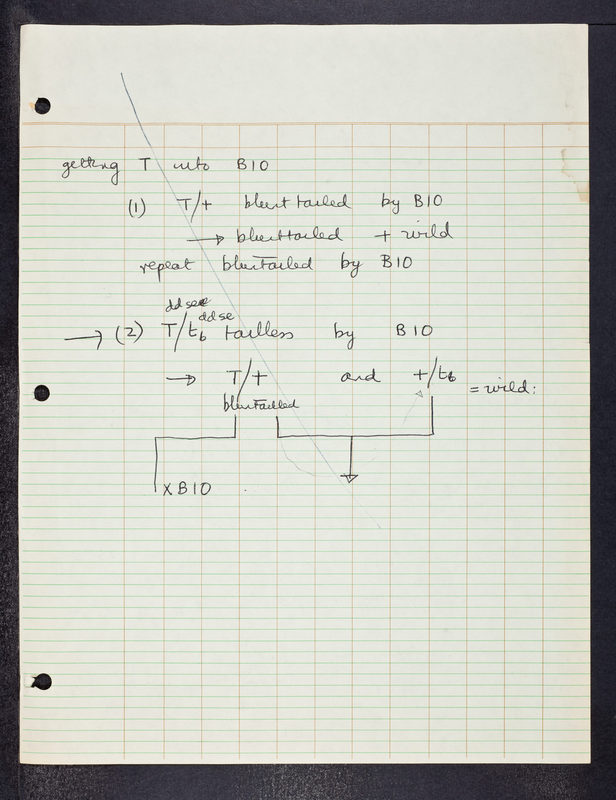 getting T into B10
(1) T/+ blunt tailed by B10
→ blunttailed + wild
repeat blunTailed by B10
dd se dd se
→ (2) T/t₆ tailless by B10
→ T/+ and +/t₆ = wild:
blunTailled
X B10